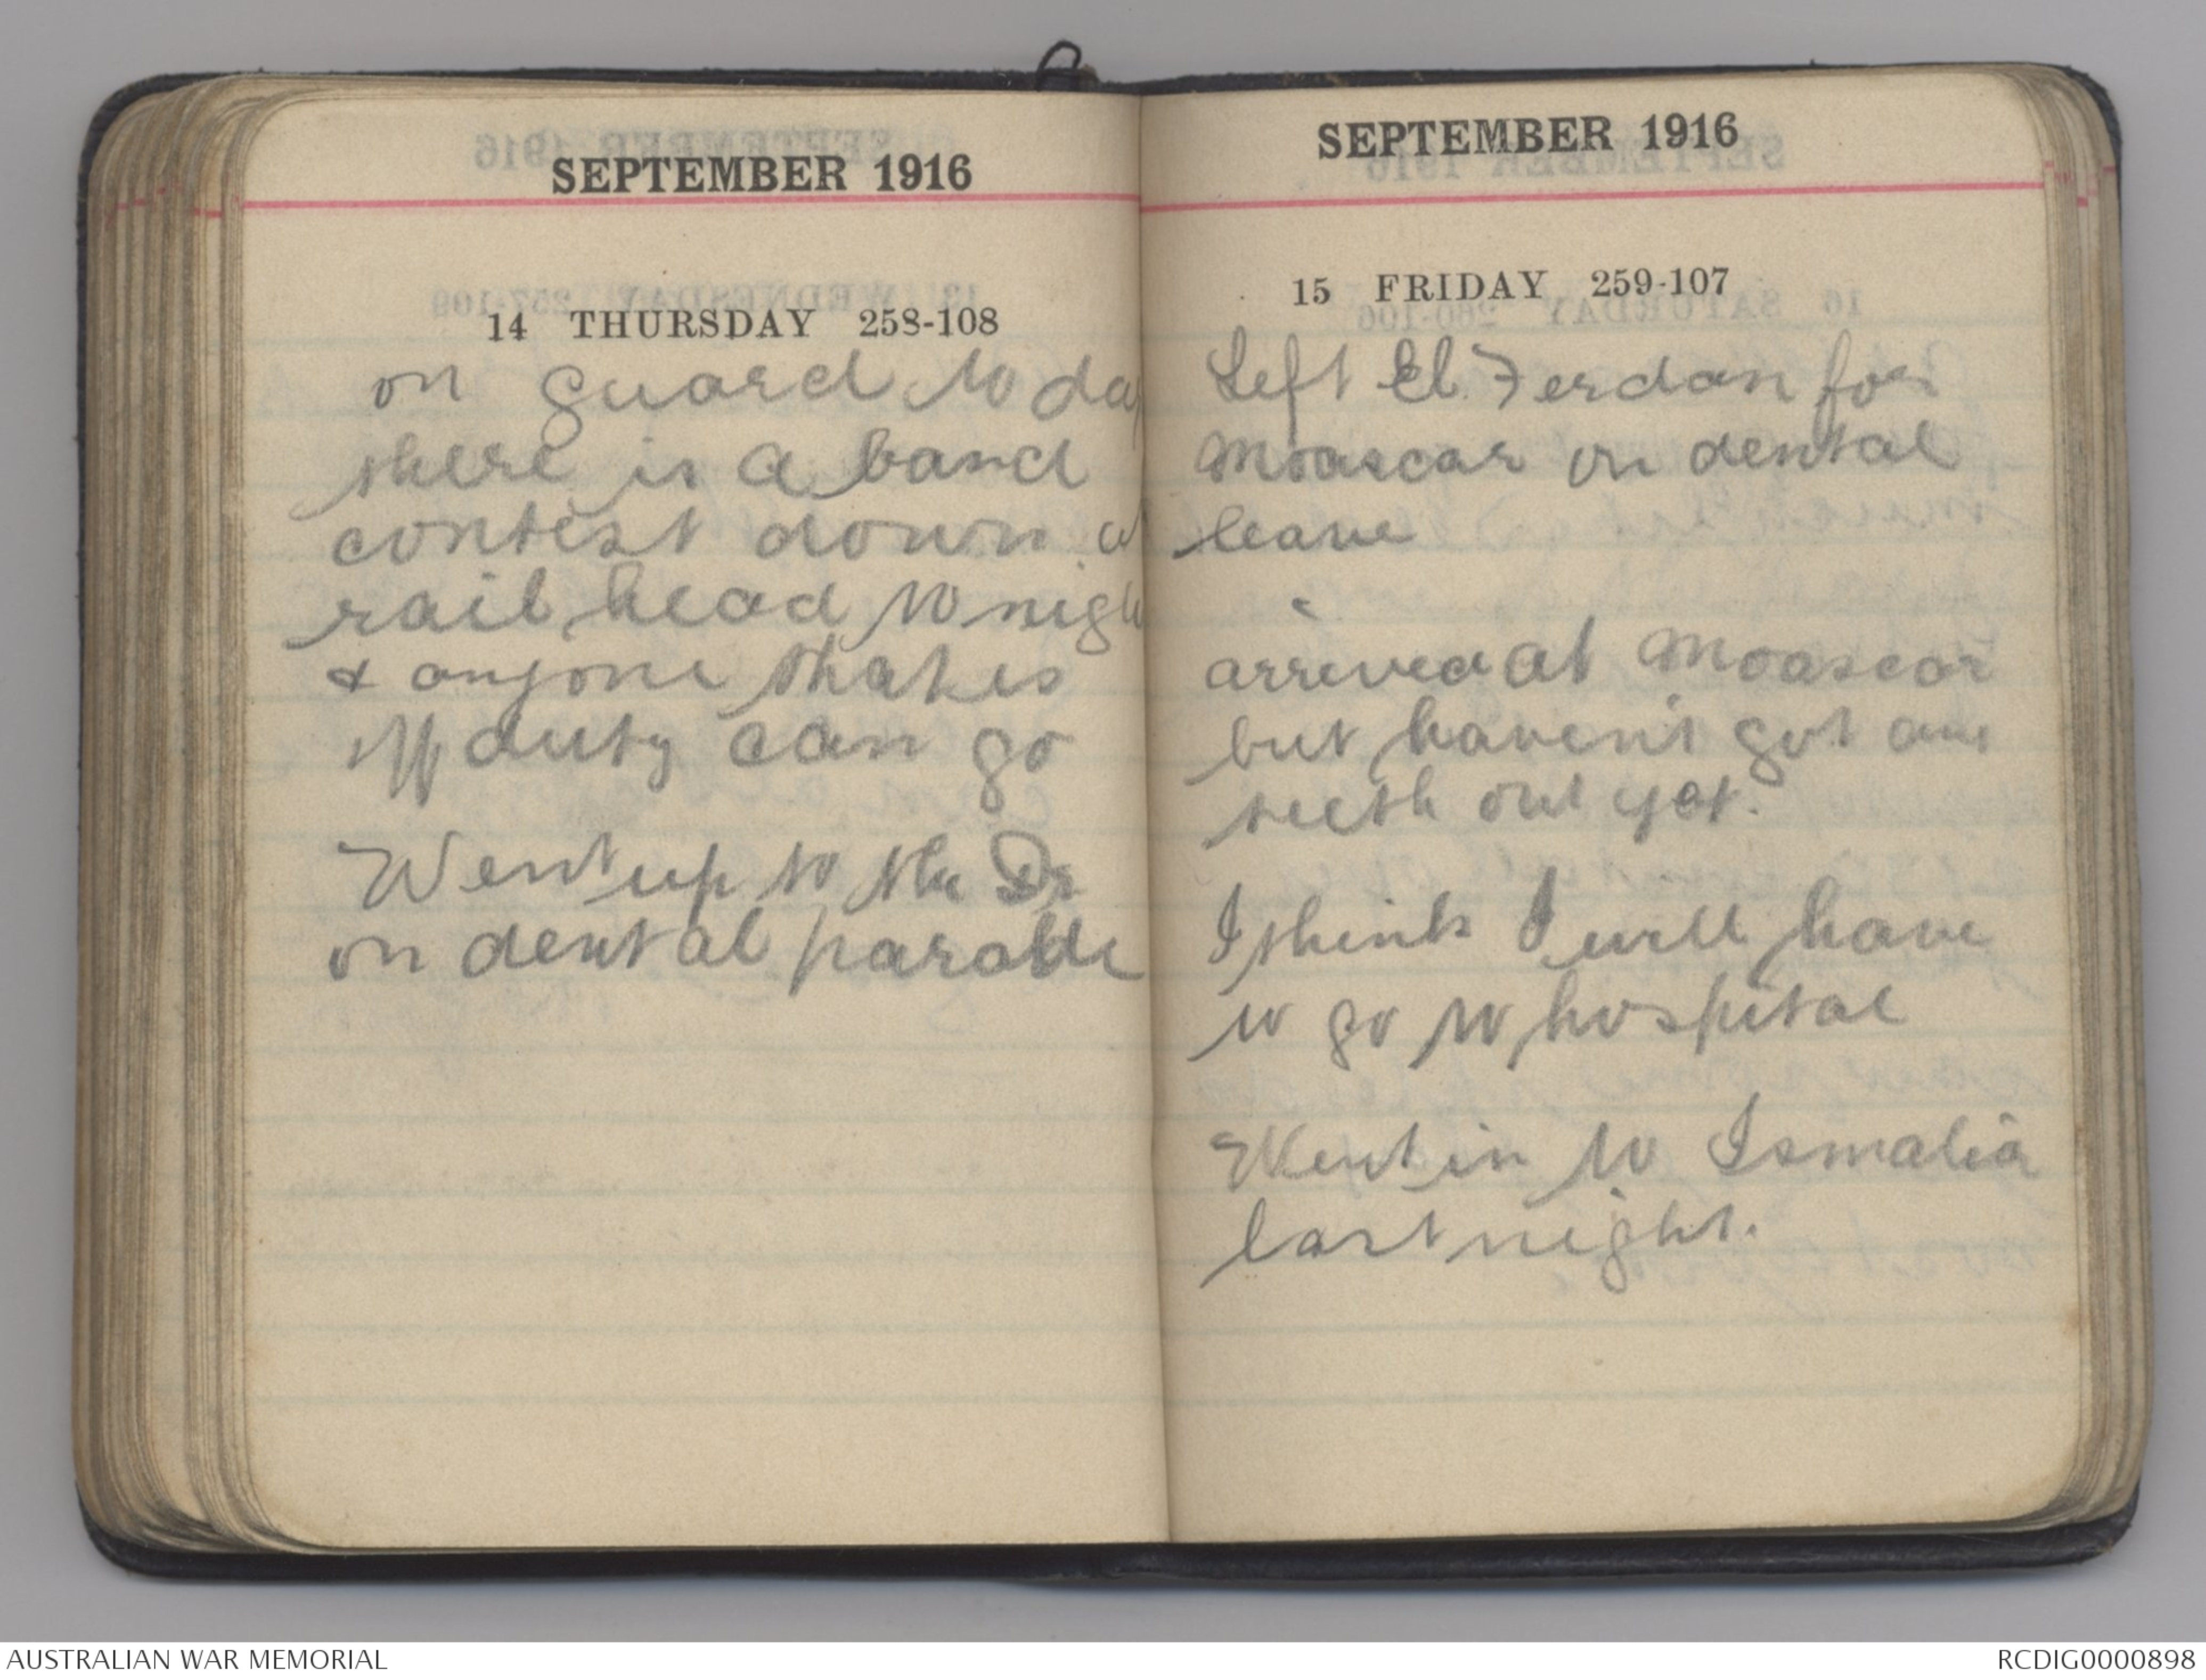 SEPTEMBER 1916
14 THURSDAY 258-108
on guard to day
there is a band
contest down at
rail head to night
& anyone thats is
off duty can go
Went up to the Dr
on dental parade
SEPTEMBER 1916
15 FRIDAY 259-107
Left El. Ferdan for
Moascar on dental
leave
arrived at Moascar
but haven't got any
teeth out yet.
I think I will have
to go to hospital
Went in to Ismalia
last night.
AUSTRALIAN WAR MEMORIAL
RCDIG0000898